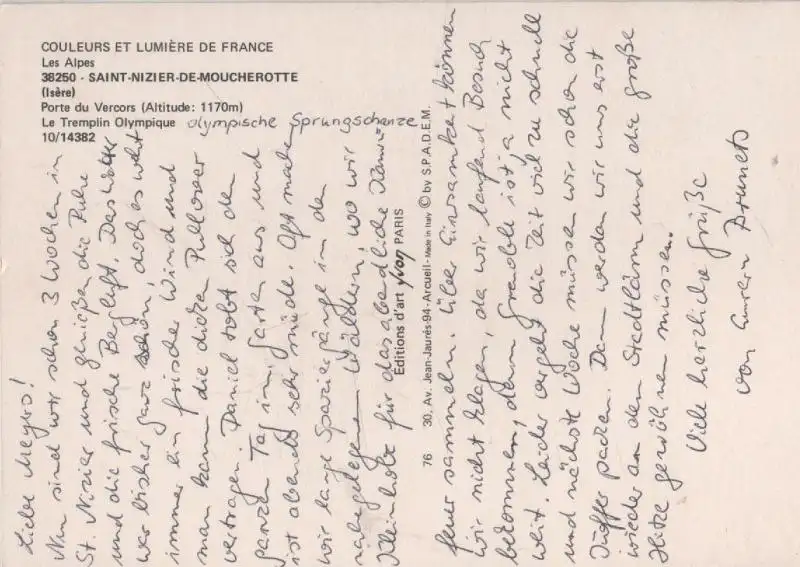 COULEURS ET LUMIÈRE DE FRANCE
Les Alpes
38250 - SAINT-NIZIER-DE-MOUCHEROTTE
(Isère)
Porte du Vercors (Altitude: 1170m)
Le Tremplin Olympique olympische Sprungschanze
10/14382
Liebe Meyers!
Nun sind wir schon 3 Wochen in
St. Nizier und genießen die Ruhe
und die frische Bergluft. Das Wetter
war bisher ganz schön, doch es weht
immer ein frischer Wind und
man kann die dicken Pullover
vertragen. Daniel tobt sich den
ganzen Tag im Garten aus und
ist abends sehr müde. Oft machen
wir lange Spaziergänge in den
nahegelegenen Wäldern, wo wir
Kleinholz für das abendliche Kamin-
feuer sammeln. Über Einsamkeit können
wir nicht klagen, da wir laufend Besuch
bekommen, denn Grenoble ist ja nicht
weit. Leider vergeht die Zeit viel zu schnell
und nächste Woche müssen wir schon die
Koffer packen. Dann werden wir uns erst
wieder an den Stadtlärm und die große
Hitze gewöhnen müssen.
Viele herzliche Grüße
von Euren
Éditions d'art yvon PARIS
76 30, Av. Jean-Jaurès-94-Arcueil - Made in Italy © by S.P.A.D.E.M.